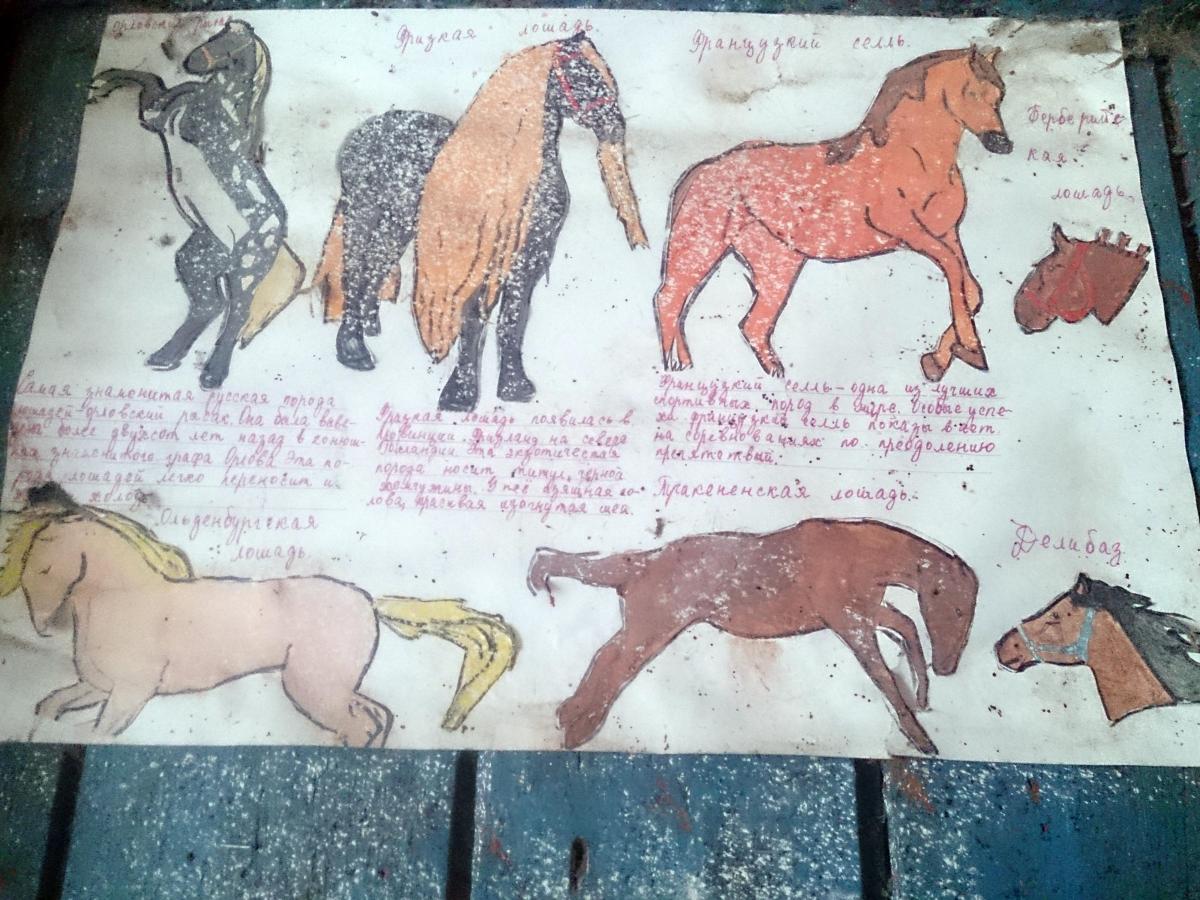 Орловский
Фризкая лошадь.
Французкий селль.
кая
лошадь.
Самая знаменитая русская порода
лошадей-орловский рысак. Она была выве-
дена более двухсот лет назад в конюш-
нях знаменитого графа Орлова. Эта по-
рода лошадей легко переносит и
холод
Фризкая лошадь появилась в
провинции Фризланд на севере
Голландии. Эта экзотическая
порода носит титул "чёрной
жемчужины. У неё изящная го-
лова, красивая изогнутая шея.
Французкий селль-одна из лучших
спортивных пород в мире. Особые успе-
хи французкий селль показывает
на соревнованиях по преодолению
препятствий.
Ольденбургская
лошадь.
Тракененская лошадь.
Делибаз